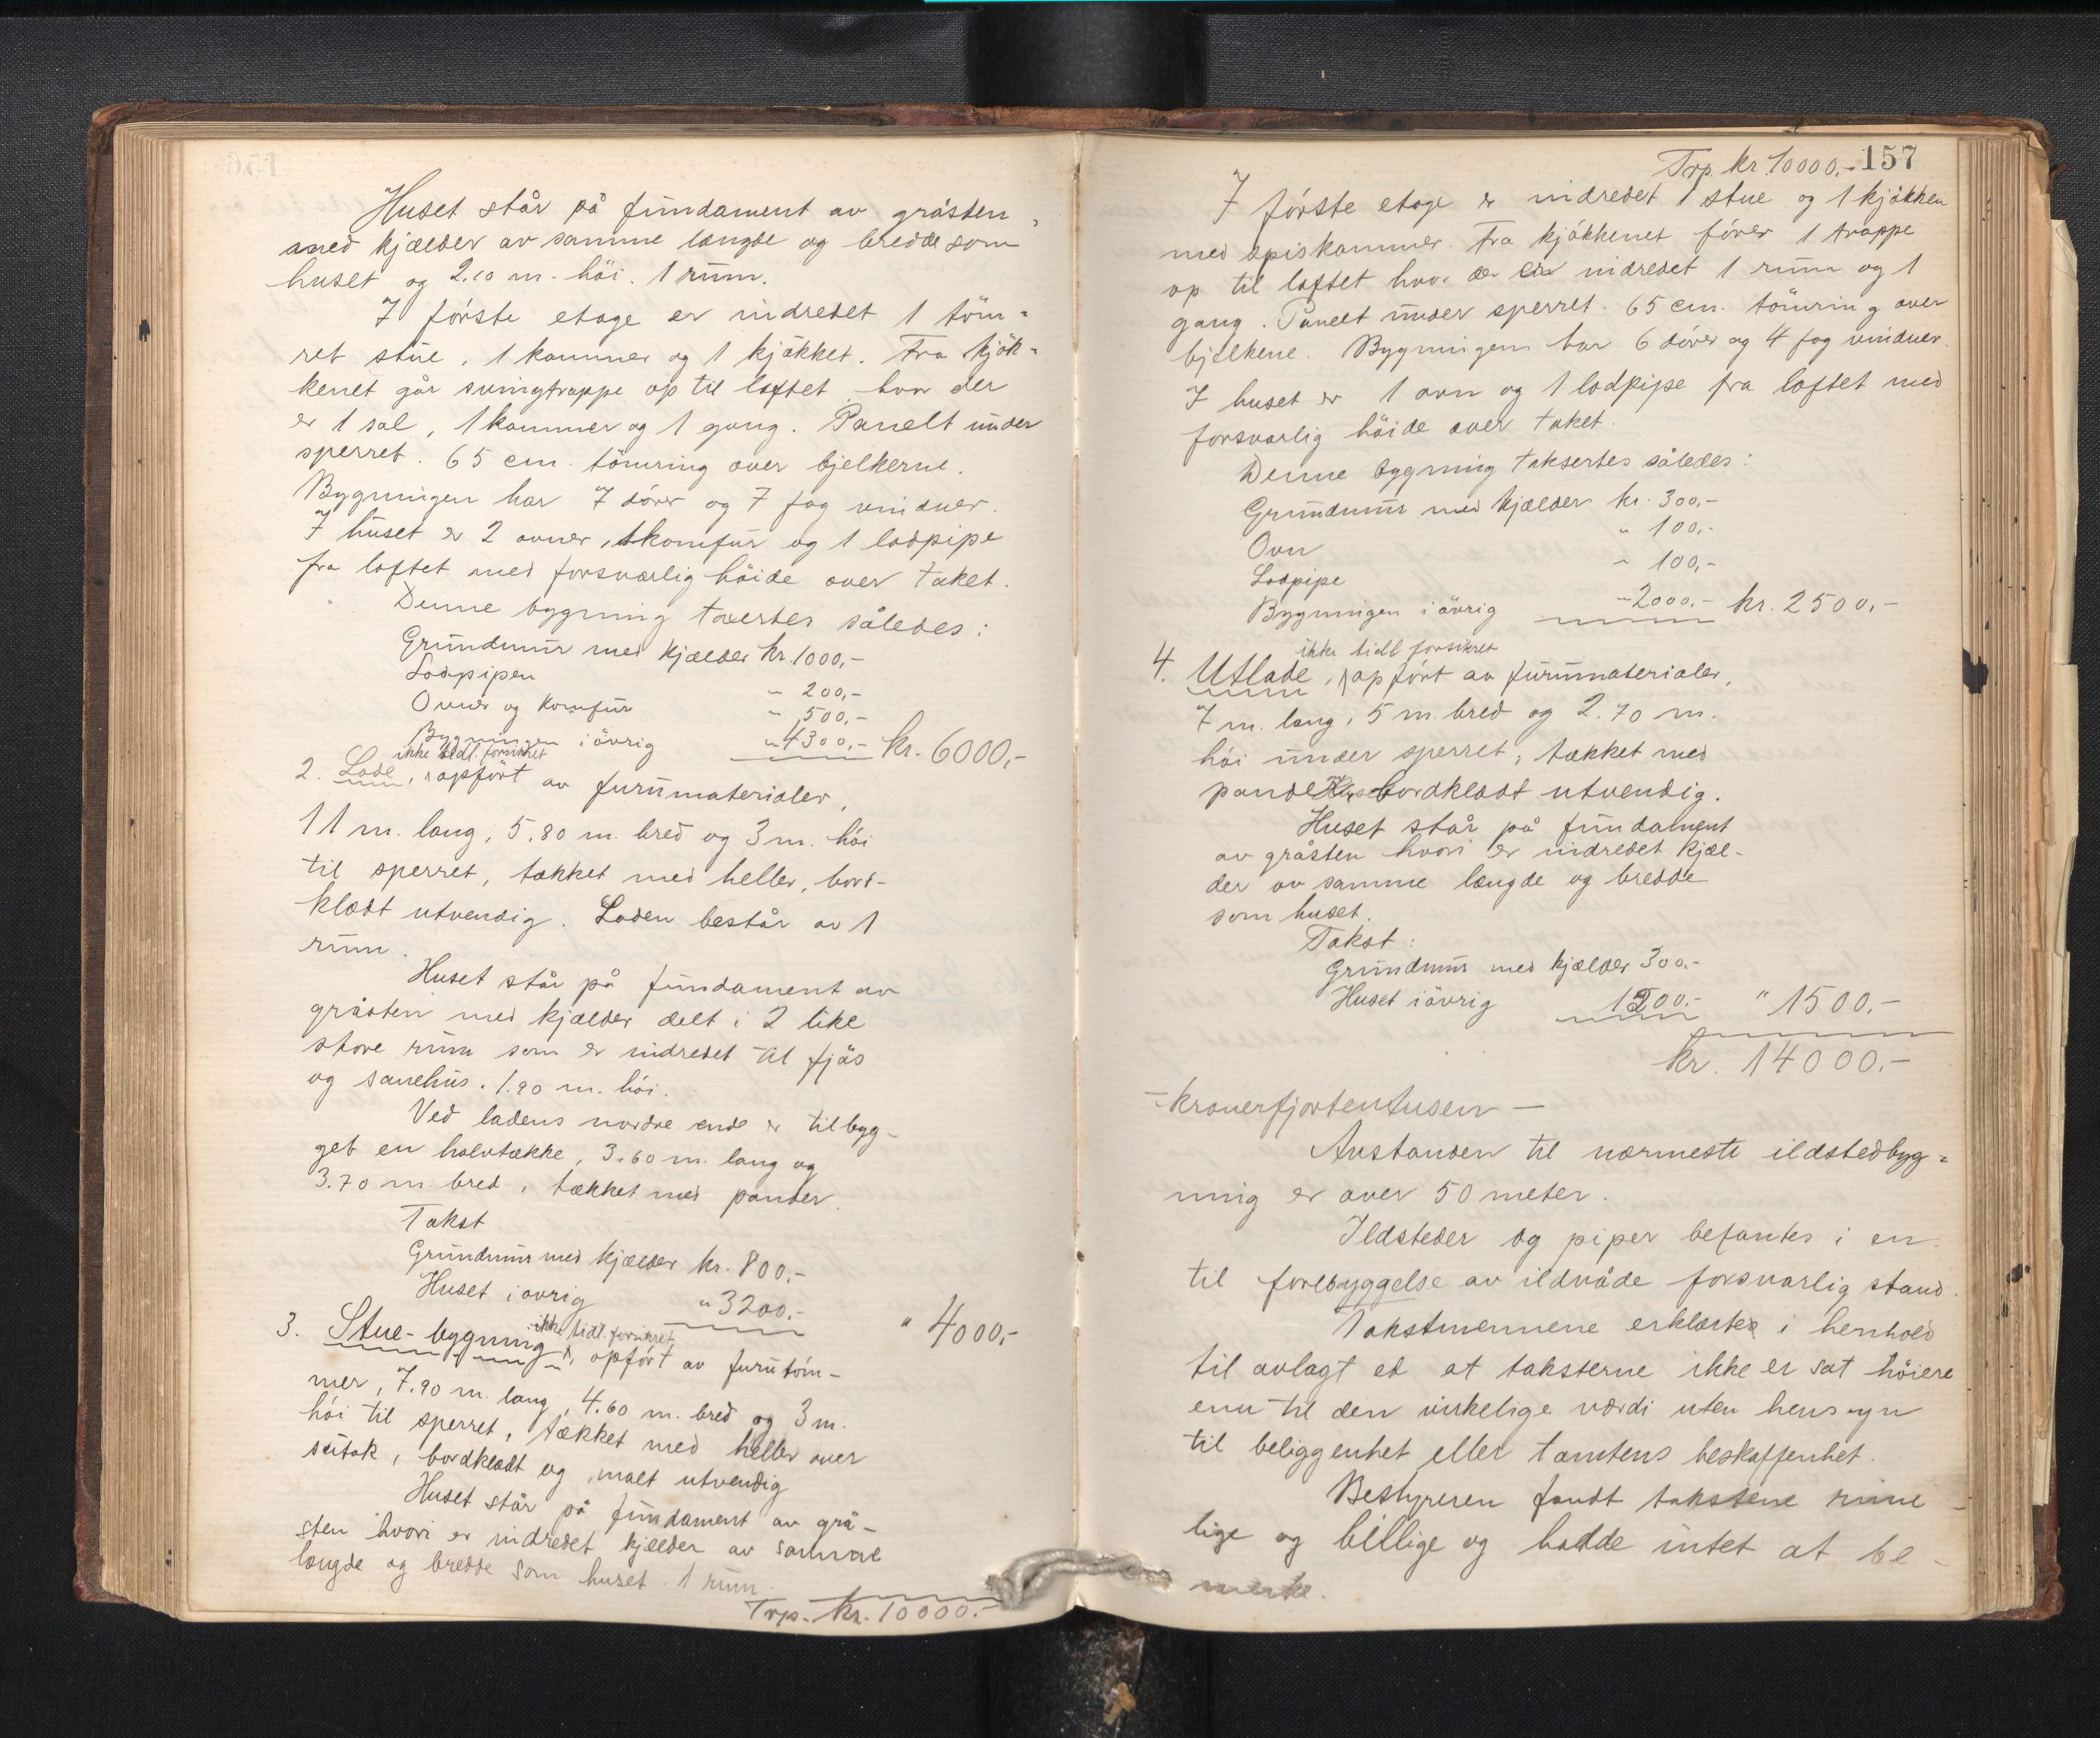 Huset står på fundament av gråsten,
med kjælder av samme længde og bredde som
huset og 2.10 m. höi. 1 rum.
I förste etage er indredet 1 töm-
ret stue, 1 kammer og 1 kjökket. Fra kjök-
kenet går svingtrappe op til loftet, hvor der
er 1 sal, 1 kammer og 1 gang. Panelt under
sperret. 65 cm. tömring over bjelkerne.
Bygningen har 7 dörer og 7 fag vinduer.
I huset er 2 ovner, 1 komfur og 1 lodpipe
fra loftet med forsvarlig höide over taket.
Denne bygning taxertes således:
Grundmur med kjælder kr. 1000,-
Lodpipen " 200,-
Ovner og komfur " 500,-
Bygningen i övrig " 4300,- kr. 6000,-
ikke tidl. forsikret
2. Lade, opfört av furumaterialer,
11 m. lang, 5.80 m. bred og 3 m. höi
til sperret, tækket med heller, bord-
klædt utvendig. Laden består av 1
rum.
Huset står på fundament av
gråsten med kjælder delt i 2 like
store rum som er indredet til fjös
og sauehus. 1.90 m. höi.
Ved ladens nordre ende er tilbyg-
get en halvtække, 3.60 m. lang og
3.70 m. bred, tækket med pander.
Takst
Grundmur med kjælder kr. 800,-
Huset i övrig " 3200,- " 4000,-
ikke tidl. forsikret
3. Stue-bygning, opfört av furutöm-
mer, 7.90 m. lang, 4.60 m. bred og 3 m.
höi til sperret, tækket med heller over
sutak, bordklædt og malt utvendig
Huset står på fundament av grå-
sten hvori er indredet kjælder av samme
længde og bredde som huset. 1 rum.
Trp. kr. 10000.-
Trp. kr. 10000,- 157
I förste etage er indredet 1 stue og 1 kjökken
med spiskammer. Fra kjökkenet förer 1 trappe
op til loftet hvor der er indredet 1 rum og 1
gang. Panelt under sperret. 65 cm. tömring over
bjelkene. Bygningen har 6 dörer og 4 fag vinduer.
I huset er 1 ovn og 1 lodpipe fra loftet med
forsvarlig höide over taket.
Denne bygning taksertes således:
Grundmur med kjælder kr. 300,-
Ovn " 100,-
Lodpipe " 100,-
Bygningen i övrig " 2000,- kr. 2500,-
ikke tidl forsikret
4. Utlade, opfört av furumaterialer,
7 m. lang, 5 m. bred og 2.70 m.
höi under sperret, tækket med
pander, bordklædt utvendig.
Huset står på fundament
av gråsten hvori er indredet kjæl-
der av samme længde og bredde
som huset.
Takst:
Grundmur med kjælder 300.-
Huset i övrig 1200.- " 1500.-
kr. 14000.-
- kronerfjortentusen -
Avstanden til nærmeste ildstedbyg-
ning er over 50 meter.
Ildsteder og piper befantes i en
til forebyggelse av ildvåde forsvarlig stand.
Takstmennene erklærtes i henhold
til avlagt ed at taksterne ikke er sat höiere
enn til den virkelige værdi uten hensyn
til beliggenhet eller tomtens beskaffenhet.
Bestyreren fandt takstene rime-
lige og billige og hadde intet at be-
merke.